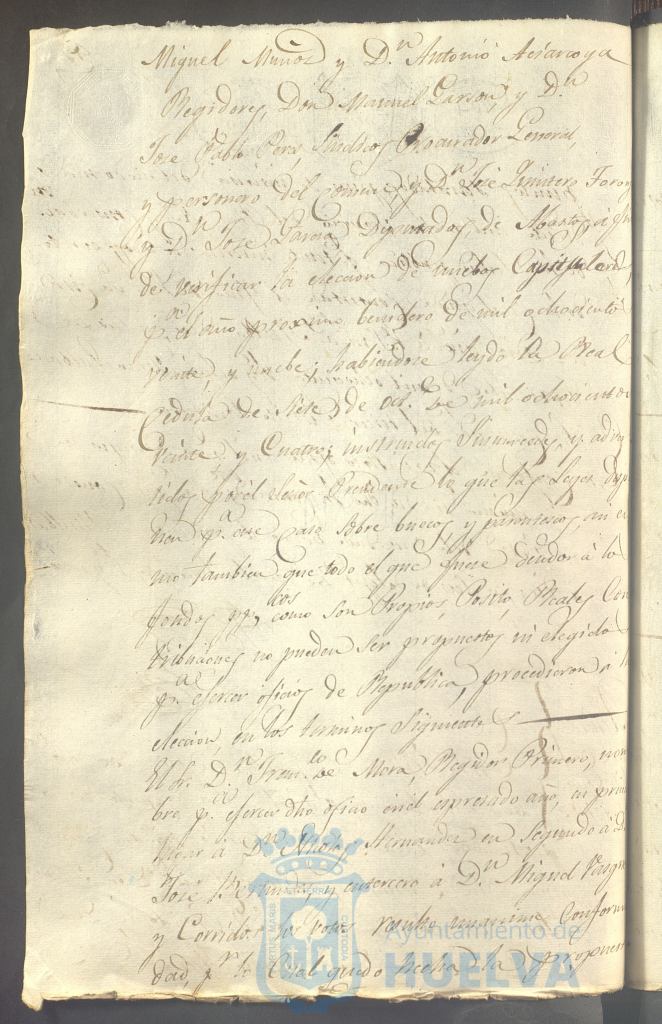 Miguel Muñoz y D.n Antonio
Regidores, Don Manuel Garson, y D.n
Jose Pablo Perez Sindicos Procurador General,
y personero del comun, y D.n Jose Quintero
y D.n Jose Garcia Diputados de Abastos, a fin
de verificar la eleccion de nuebos Capitulares
p.a el año proximo benidero de mil ochocientos
veinte, y nuebe; habiendose leydo la Real
Cedula de siete de oct.e de mil ochocientos
veinte y Cuatro; instruidos Susmercedes, y adver
tidos por el Señor Presidente lo que las Leyes dispo
nen p.a este caso sobre huecos y parentescos
mo tambien que todo el que fuese deudor à lo
fondos pp.cos como son Propios, Posito, Reales Con
tribuciones no pueden ser propuestos ni elegido
p.a ejercer oficios de Republica, procedieron à l
eleccion, en los terminos siguientes
El S.r D.n Fran.co de Mora, Regidor Primero, nom
bro p.a ejercer dho oficio en el espresado año, en prim
lugar à D.n Hernandez en segundo à D
Jose y en tercero à D.n Miguel
y Corrido los votos resulto unanime Conformi
dad, p.r lo Cual quedo hecha la propuesta
Ayuntamiento de
HUELVA